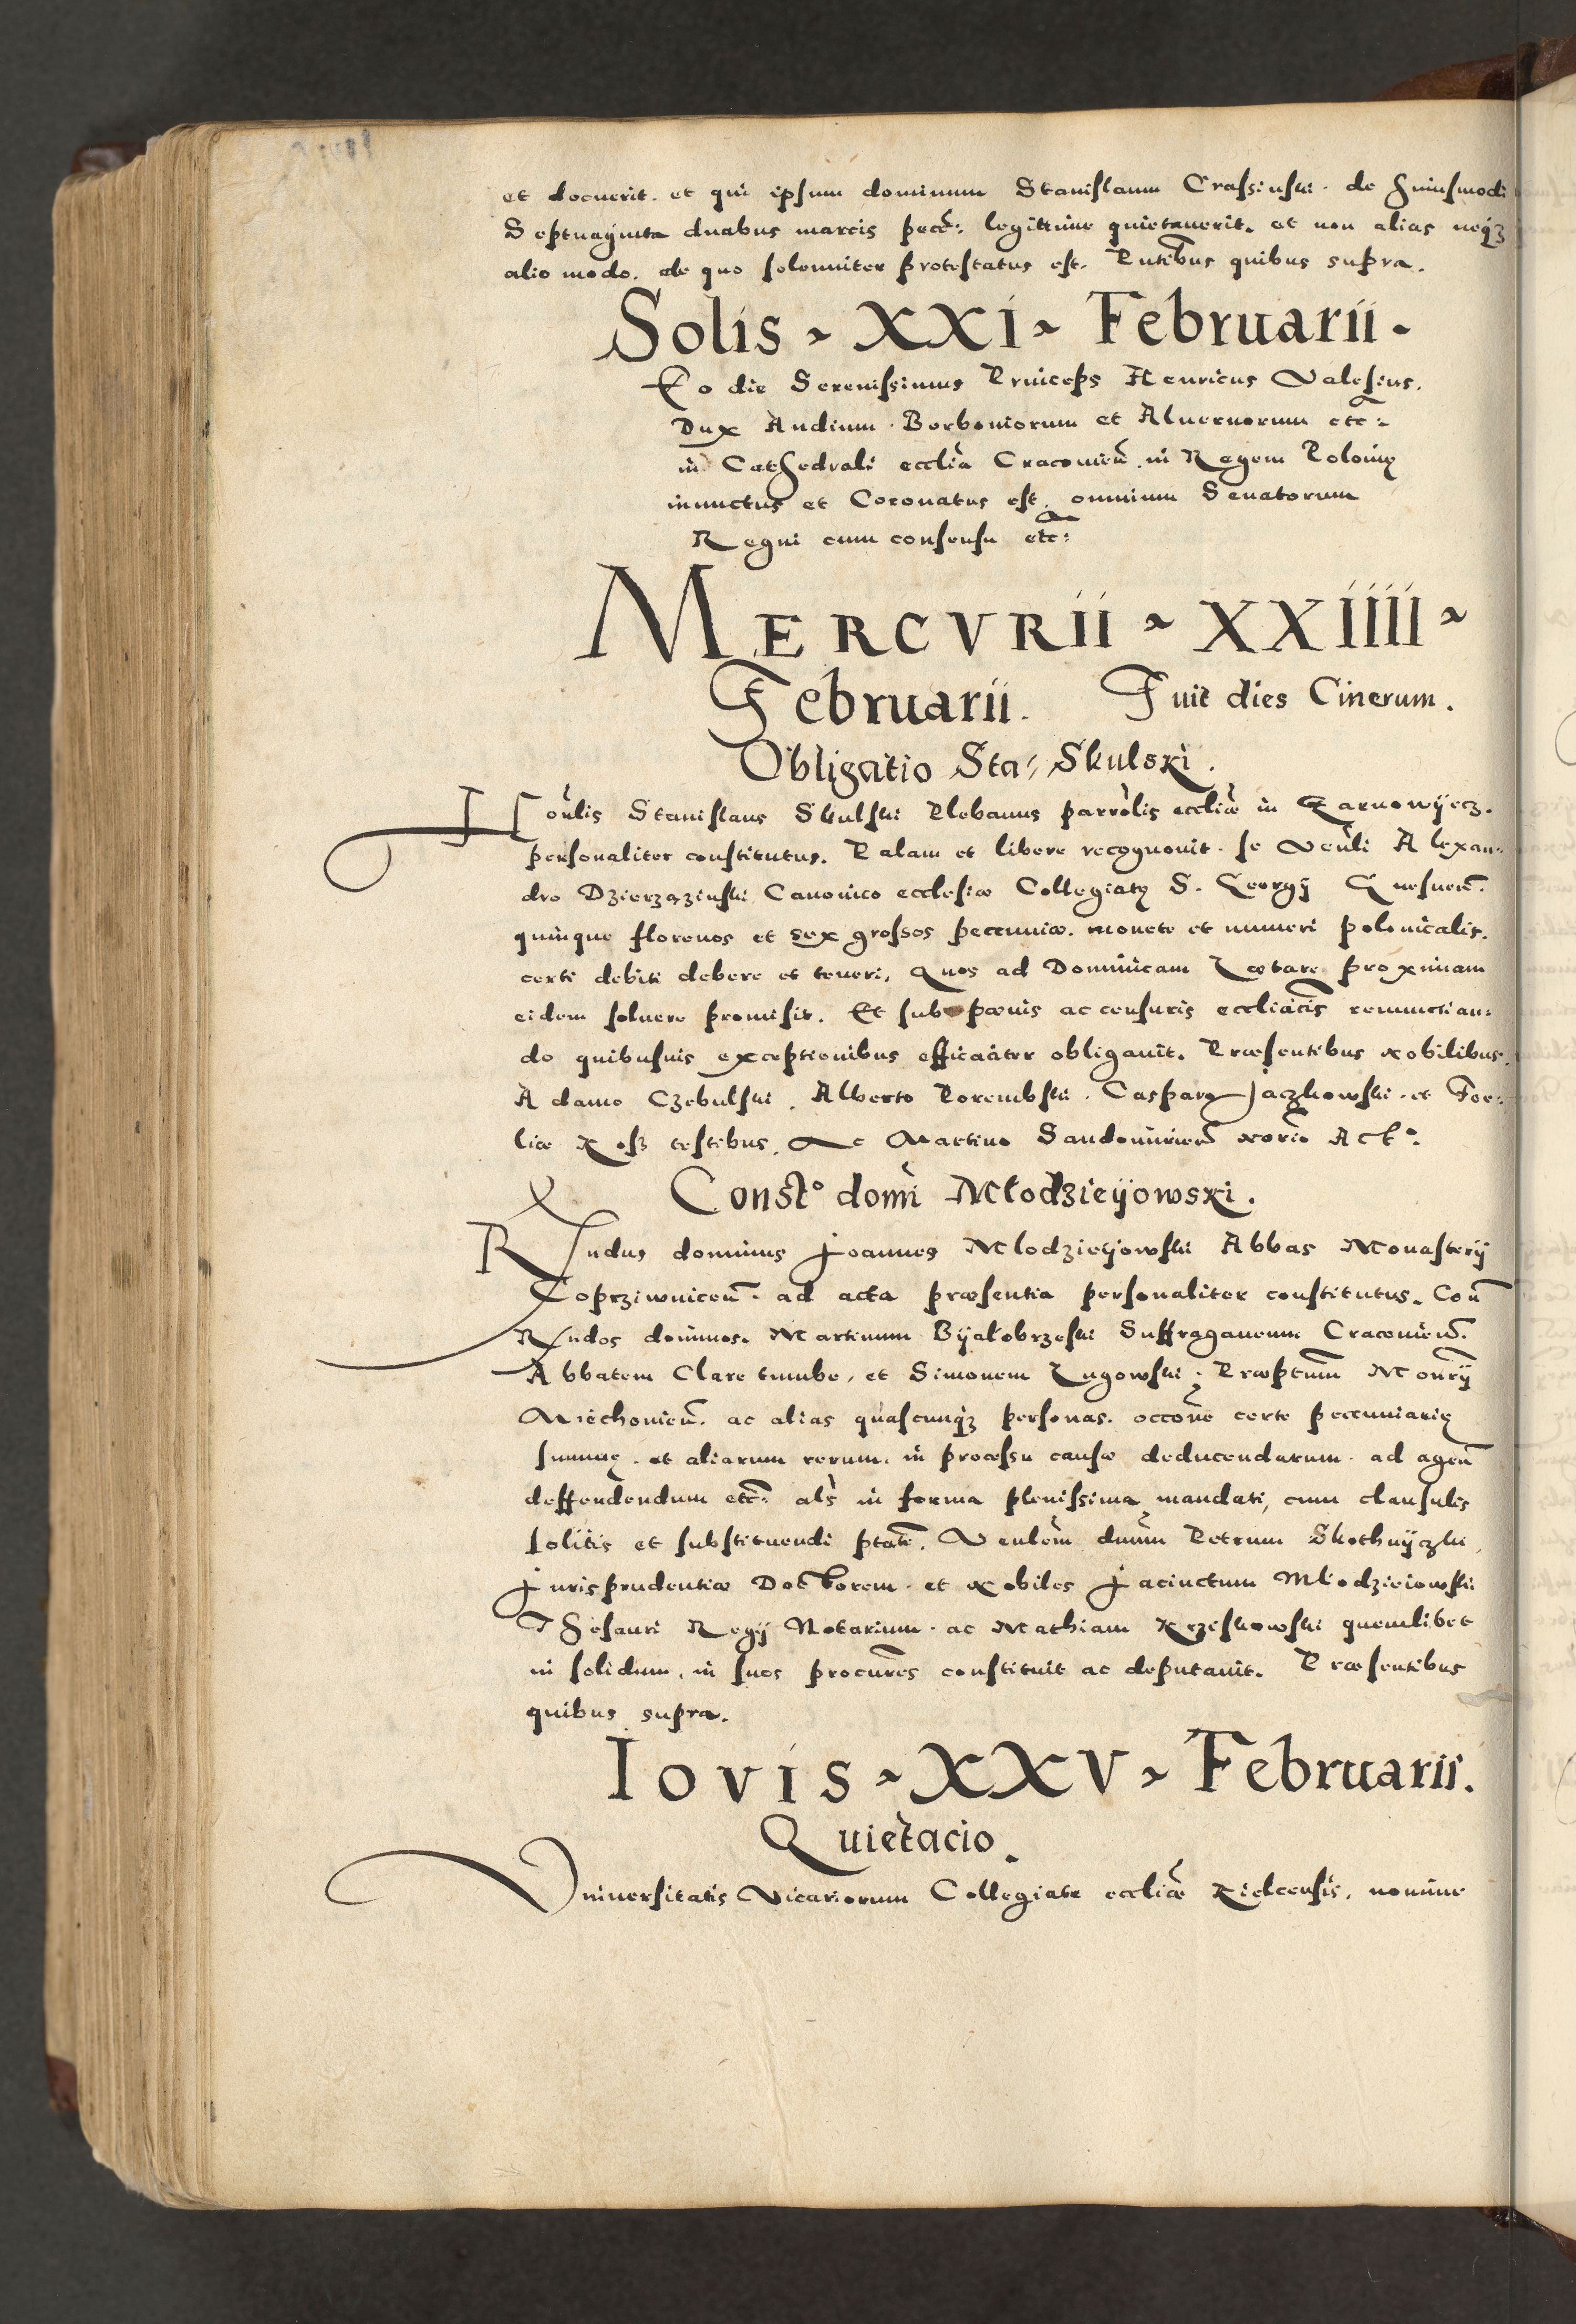 et docuerit. et qui ipsum dominum Stanislaum Crassinski. de huiusmodi
Septuaginta duabus marcis pecē: legittime quietauerit. et non alias neqȝ
alio modo. de quo solenniter protestatus est. Pntibus quibus supra.
Solis ~ XXI ~ Februarii.
Eo die Serenissimus Princeps Henricus Valesius.
Dux Andium. Borboniorum et Aluernorum etc:
in Cathedrali ecclīa Cracouieñ. in Regem Polonię
inunctus et Coronatus est. omnium Senatorum
Regni cum consensu etc:
MERCVRII ~ XXIIII ~
Februarii. Fuit dies Cinerum.
Obligatio Sta: Skulski.
Hoñlis Stanislaus Skulski Plebanus parrolis eccliæ in Czarnowyecz.
personaliter constitutus. Palam et libere recognouit. se Veñli Alexan:
dro Dzierzązinski Canonico ecclesiæ Collegiatę S. Georgij Gnesneñ.
quinque florenos et sex grossos pecuniæ. monete et numeri polonicalis.
certi debiti debere et teneri. Quos ad Dominicam Lætare proximam
eidem soluere promisit. Et sub pœnis ac censuris eccliacis renunctian:
do quibusuis exceptionibus efficaciter obligauit. Præsentibus nobilibus.
Adamo Czebulski. Alberto Porembski. Casparo Jaczkowski. et
testibus. Ac Martino Sandomirieñ norio Actº.
Constº domi Młodzieyowski.
Rndus dominus Joannes Mlodzieyowski Abbas Monasterij
Coprziwniceñ. ad acta præsentia personaliter constitutus. Coñ
Rndos dominos. Martinum Byałobrzeski Suffraganeum Cracouieñ.
Abbatem Clare tumbe. et Simonem Lugowski. Præptum Monrij
Miechouieñ. ac alias quascunqȝ personas. occone certe pecuniarię
summę. et aliarum rerum. in processu causæ deducendarum. ad ageñ
deffendendum etc: als in forma plenissima mandati, cum clausulis
solitis et substituendi ptatē. Venlem dnum Petrum Skothnyczki
Jurisprudentiæ Doctorem. et nobiles Jacinctum Młodzieiowski
Thesauri Regij Notarium. ac Mathiam Krziskowski quemlibet
in solidum. in suos procures constituit ac deputauit. Præsentibus
quibus supra.
Iovis ~ XXV ~ Februarii.
Quietacio.
Vniuersitatis Vicariorum Collegiate eccliæ Kielcensis. nomine